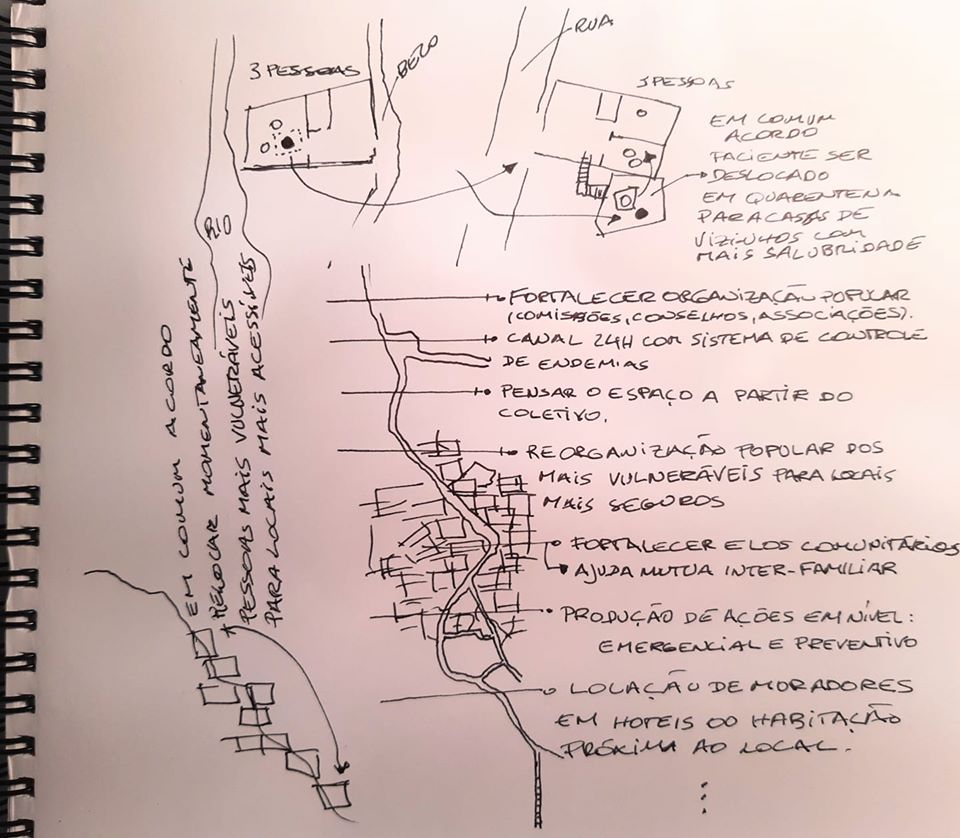 3 PESSOAS
BECO
RUA
3 PESSOAS
EM COMUM
ACORDO
PACIENTE SER
DESLOCADO
EM QUARENTENA
PARA CASAS DE
VIZINHOS COM
MAIS SALUBRIDADE
RIO
EM COMUM ACORDO
RELOCAR MOMENTANEAMENTE
PESSOAS MAIS VULNERÁVEIS
PARA LOCAIS MAIS ACESSÍVEIS
FORTALECER ORGANIZAÇÃO POPULAR
(COMISSÕES, CONSELHOS, ASSOCIAÇÕES).
CANAL 24H COM SISTEMA DE CONTROLE
DE ENDEMIAS
PENSAR O ESPAÇO A PARTIR DO
COLETIVO.
REORGANIZAÇÃO POPULAR DOS
MAIS VULNERÁVEIS PARA LOCAIS
MAIS SEGUROS
FORTALECER ELOS COMUNITÁRIOS
AJUDA MUTUA INTER-FAMILIAR
PRODUÇÃO DE AÇÕES EM NÍVEL:
EMERGENCIAL E PREVENTIVO
LOCAÇÃO DE MORADORES
EM HOTEIS OU HABITAÇÃO
PRÓXIMA AO LOCAL.